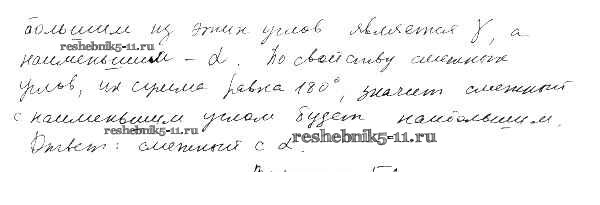 большим из этих углов является γ, а
reshebnik5-11.ru
наименьшим - α. По свойству смежных
углов, их сумма равна 180°, значит смежный
с наименьшим углом будет наибольшим.
reshebnik5-11.ru
reshebnik5-11.ru
Ответ: смежный с α.